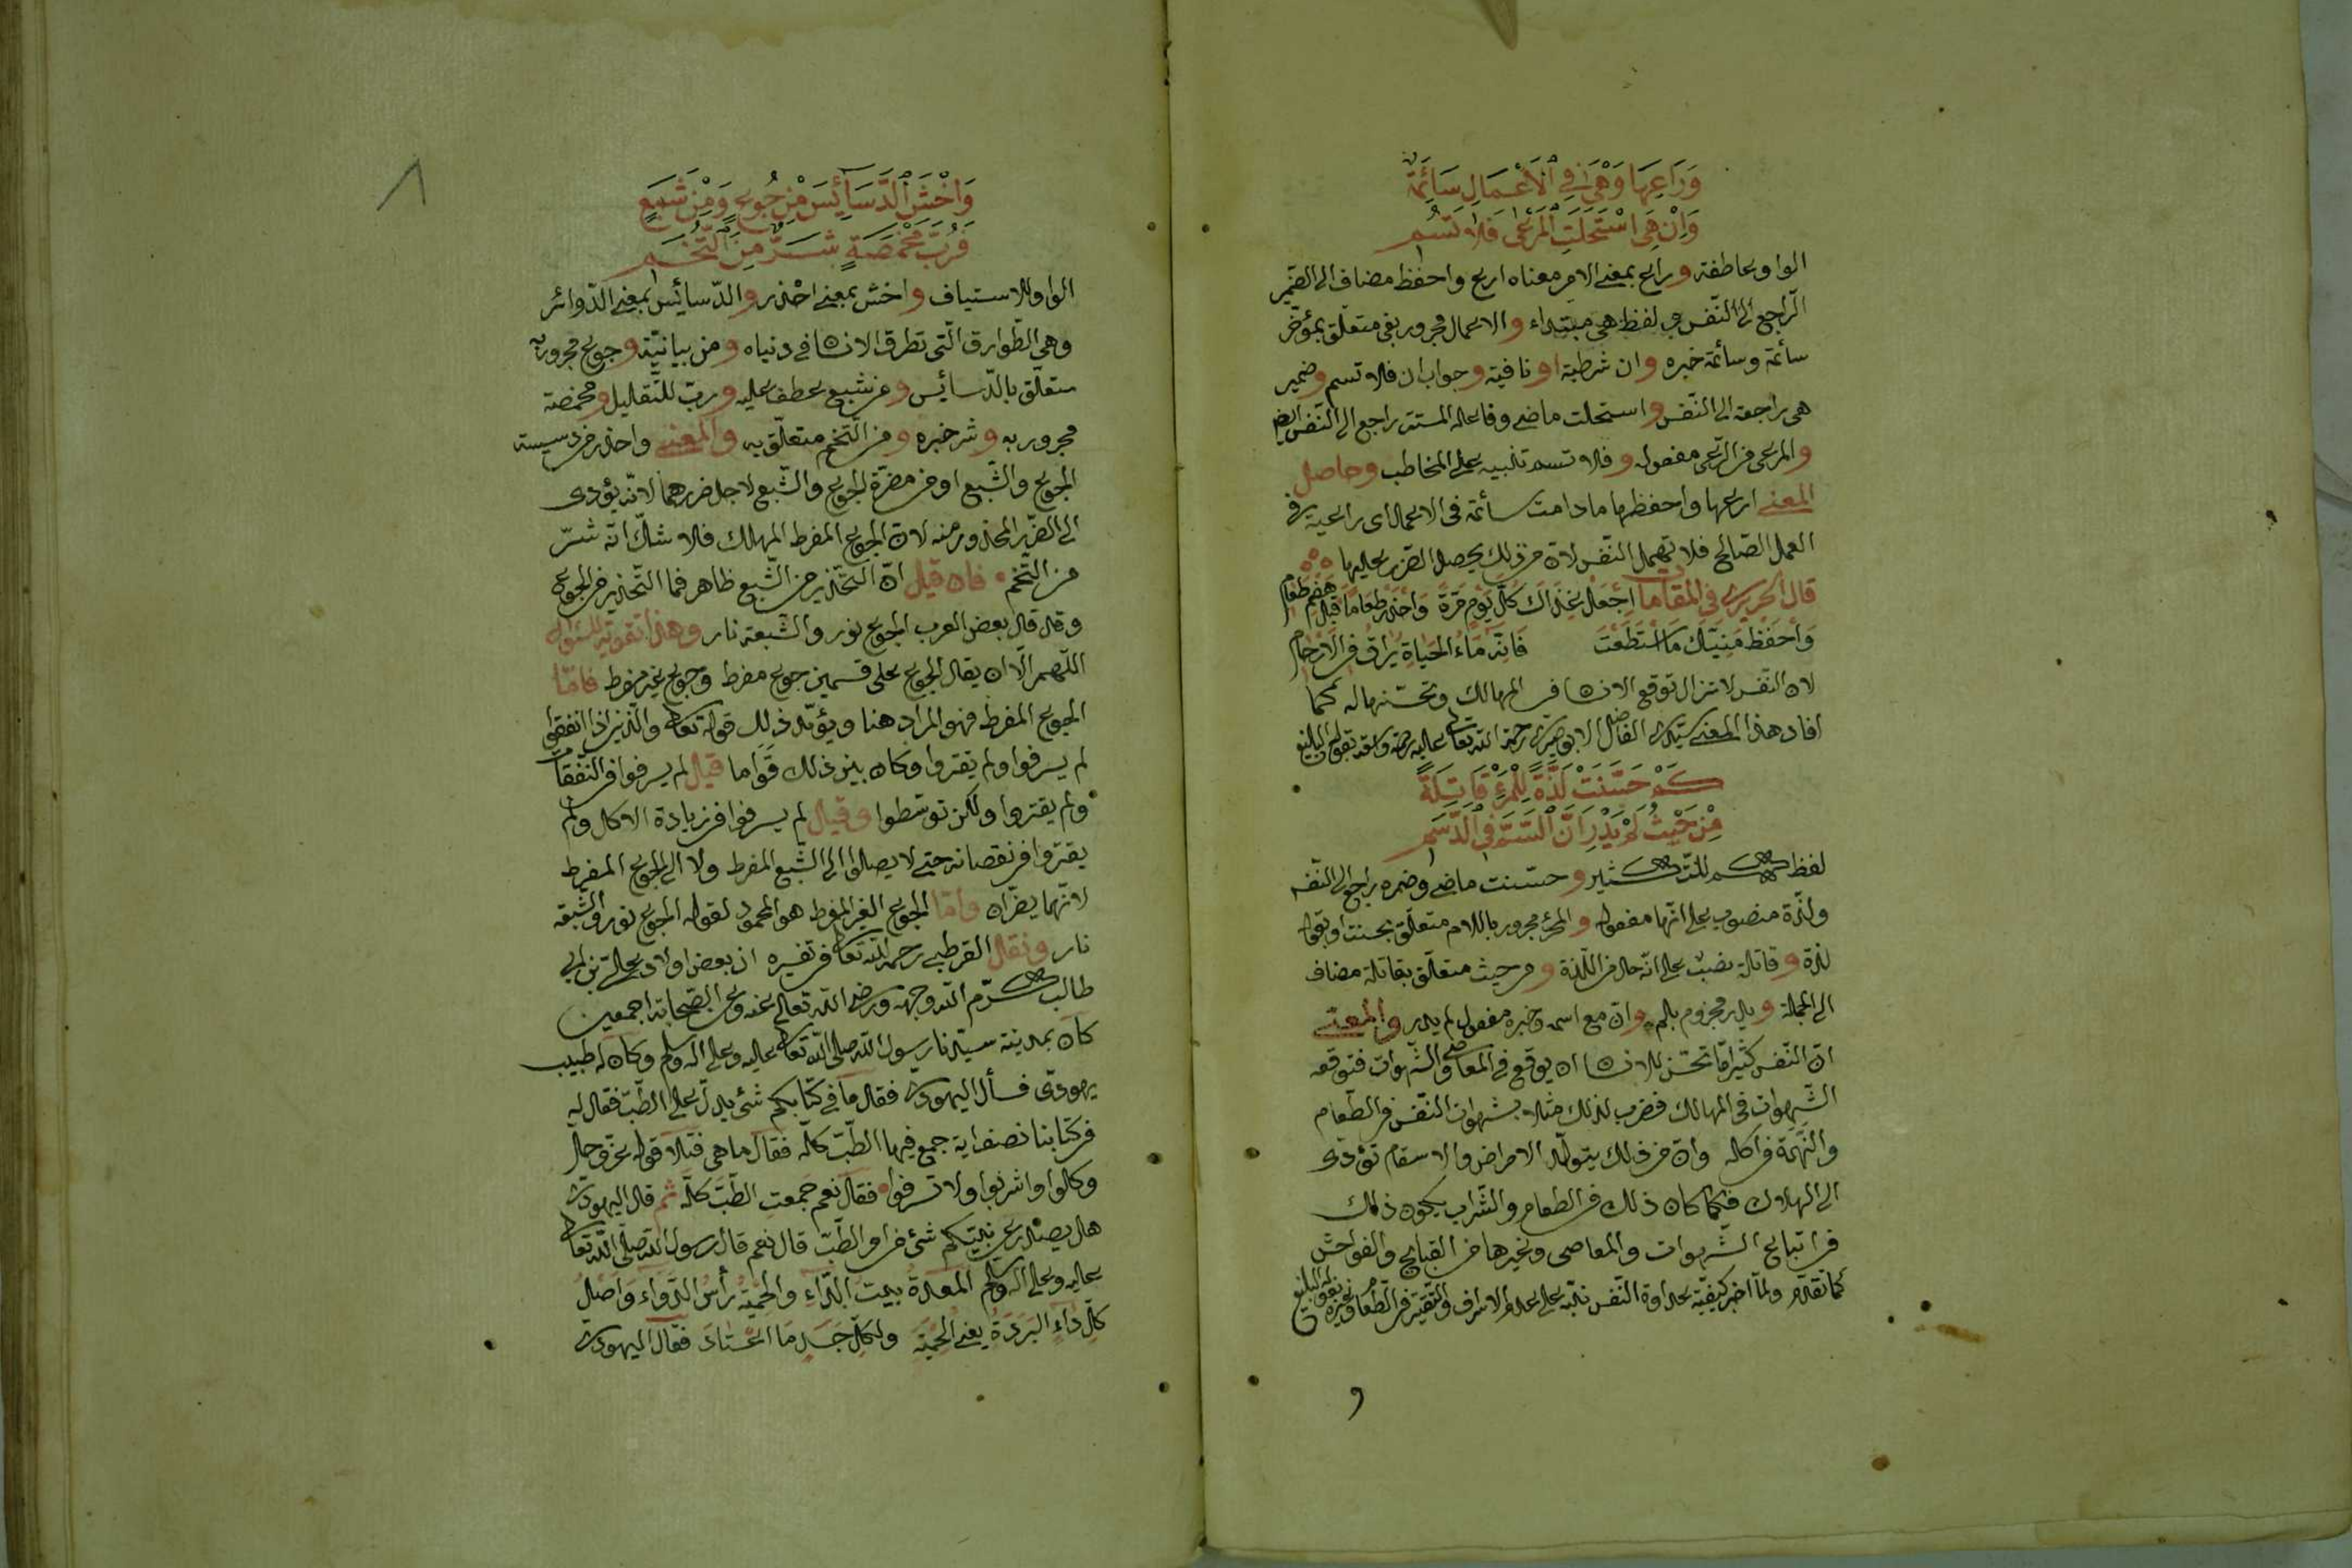 وَرَاعِهَا وَهْيَ فِي الْأَعْمَالِ سَائِمَةٌ
وَاِنْ هِيَ اسْتَحْلَتِ الْمَرْعٰى فَلَا تُسِمِ
الواو عاطفة وراع بمعنى الامر معناه ارع واحفظ مضاف الى الضمير
الراجع الى النّفس لفظ هي مبتداء والاعمال مجرور بفي متعلّق بمؤخّر
سائمة وسائمة خبره وان شرطية او نافية وجواب ان فلا تسم وضمير
هى راجعة الى النّفس واستحلت ماضي وفاعله المستتر راجع الى النّفس ايضا
والمرعى من الرّعى مفعوله وفلا تسم تنبيه على المخاطب وحاصل
المعنى ارعها واحفظها ما دامت سائمة فى الاعمال اى راعية فى
العمل الصّالح فلا تهمل النّفس لانّ من ذلك يحصل الضّرر عليها
قال الحريرى في المقامات اِجْعَلْ غِذَاكَ كُلَّ يَوْمٍ مَرَّةً وَاحْذَرْ طَعَامًا قَبْلَ هَضْمِ طَعَامِ
وَاحْفَظْ مَنِيَّكَ مَا اسْتَطَعْتَ فَاِنَّهُ مَاءُ الْحَيَاةِ يُرَاقُ فِى الْاَرْحَامِ
لان النّفس لا تزال توقع الانسان فى المهالك وتحسّنها له كما
افاد هذا المعنى سيّدى الفاضل الابوصيرى رحمة الله تعالى عليه رحمة واسعة بقوله البليغ
كَمْ حَسَّنَتْ لَذَّةً لِلْمَرْءِ قَاتِلَةً
مِنْ حَيْثُ لَمْ يَدْرِ اَنَّ السَّمَّ فِي الدَّسَمِ
لفظ كم للتّكثير وحسّنت ماضي وضميره راجع الى النّفس
ولذّة منصوب على انّها مفعوله والمرء مجرور باللام متعلّق بحسنت او بقوله
لذة وقاتلة نصب على انّه حال من اللّذة ومن حيث متعلّق بقاتلة مضاف
الى الجملة ويدر مجزوم بلم وانّ مع اسمه وخبره مفعول لم يدر والمعنى
انّ النّفس كثيرا ما تحسّن للانسان ان يوقع في المعاصى والشّهوات فتوقعه
الشّهوات فى المهالك فضرب لذلك مثلا بشهوات النّفس فى الطّعام
والنّهمة فى اكله وانّ من ذلك يتولّد الامراض والاسقام تؤدى
الى الهلاك فكما كان ذلك فى الطعام والشّراب يكون ذلك
فى اتباع الشّهوات والمعاصى وغيرها من القبايح والفواحش
كما تقدّم ولمّا اخبر كيفيّة عداوة النّفس نبّه على عدم الاسراف والتّقتير فى الطّعام وغيره بقوله البليغ
وَاخْشَ الدَّسَائِسَ مِنْ جُوعٍ وَمِنْ شَبَعٍ
فَرُبَّ مَخْمَصَةٍ شَرٌّ مِنَ التُّخَمِ
الواو للاستيناف واخش بمعنى احذر والدّسائس بمعنى الدّوائر
وهى الطّوارق الّتى تطرق الانسان فى دنياه ومن بيانيّة وجوع مجرور به
متعلّق بالدّسائس ومن شبع عطف عليه وربّ للتّقليل ومخمصة
مجرور به وشر خبره ومن التّخم متعلّق به والمعنى واحذر من دسيسة
الجوع والشّبع او من مضرّة الجوع والشّبع لاجل ضررهما لانّه يؤدى
الى الضّرر المحذور منه لانّ الجوع المفرط المهلك فلا شكّ انّه شرّ
من التّخم فان قيل انّ التّحذير من الشّبع ظاهر فما التّحذير من الجوع
وقد قال بعض العرب الجوع نور والشّبعة نار وهذا تقوية للسّؤال
اللّهمّ الّا ان يقال الجوع على قسمين جوع مفرط وجوع غير مفرط فامّا
الجوع المفرط فهو المراد هنا ويؤيّد ذلك قوله تعالى والّذين اذا انفقوا
لم يسرفوا ولم يقتروا وكان بين ذلك قَوَاما قيل لم يسرفوا فى النّفقات
ولم يقتروا ولكن توسّطوا وقيل لم يسرفوا فى زيادة الاكل ولم
يقتروا فى نقصانه حتّى لا يصلوا الى الشّبع المفرط ولا الى الجوع المفرط
لانّهما يضرّان وامّا الجوع الغير المفرط هو المحمود لقوله الجوع نور والشّبعة
نار ونقل القرطبى رحمه الله تعالى فى تفسيره ان بعض اولاد على بن ابى
طالب كرّم الله وجهه ورضى الله تعالى عنه وعن الصّحابة اجمعين
كان بمدينة سيّدنا رسول الله صلى الله تعالى عليه وعلى اله وسلم وكان له طبيب
يهودىّ فسأل اليهودى فقال ما فى كتابكم شئ يدلّ على الطّبّ فقال له
فى كتابنا نصف اية جمع فيها الطّبّ كلّه فقال ما هى فتلا قوله عزّ وجلّ
وكلوا واشربوا ولا تسرفوا فقال نعم جمعت الطّبّ كلّه ثم قال اليهودى
هل يصدر عن نبيّكم شئ من امر الطّبّ قال نعم قال رسول الله صلّى الله تعالى
عليه وعلى اله وسلم المعدة بيت الدّاءِ والحِمْيَةُ رأسُ الدّواءِ وَاَصْلُ
كلّ دَاءٍ البَرَدَةُ يعنى الحِمْيَة ولكلّ جَسَدٍ مَا اعْتَادَ فقال اليهودى